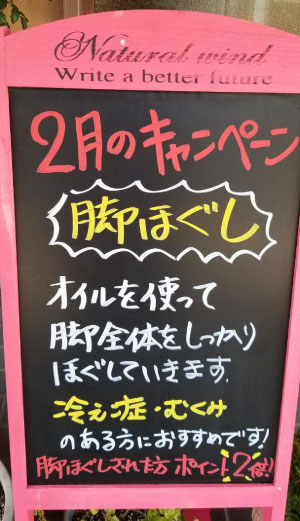 Natural wind
Write a better future
2月のキャンペーン
脚ほぐし
オイルを使って
脚全体をしっかり
ほぐしていきます。
冷え症・むくみ
のある方におすすめです!
脚ほぐしされた方 ポイント2倍!